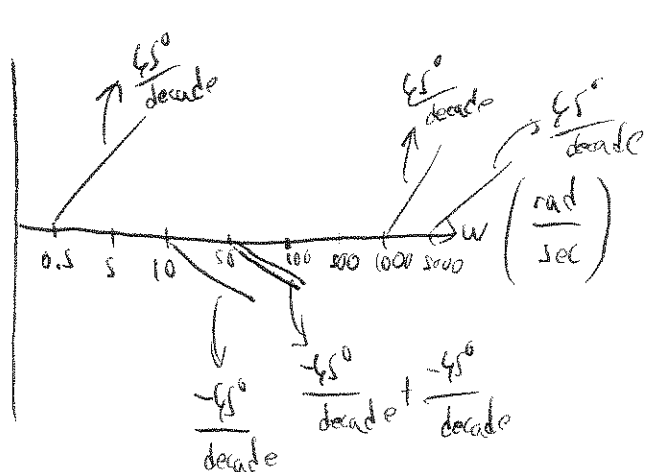 45°/decade
45°/decade
45°/decade
0.5 5 10 50 100 500 1000 5000 w (rad/sec)
-45°/decade
-45°/decade + -45°/decade